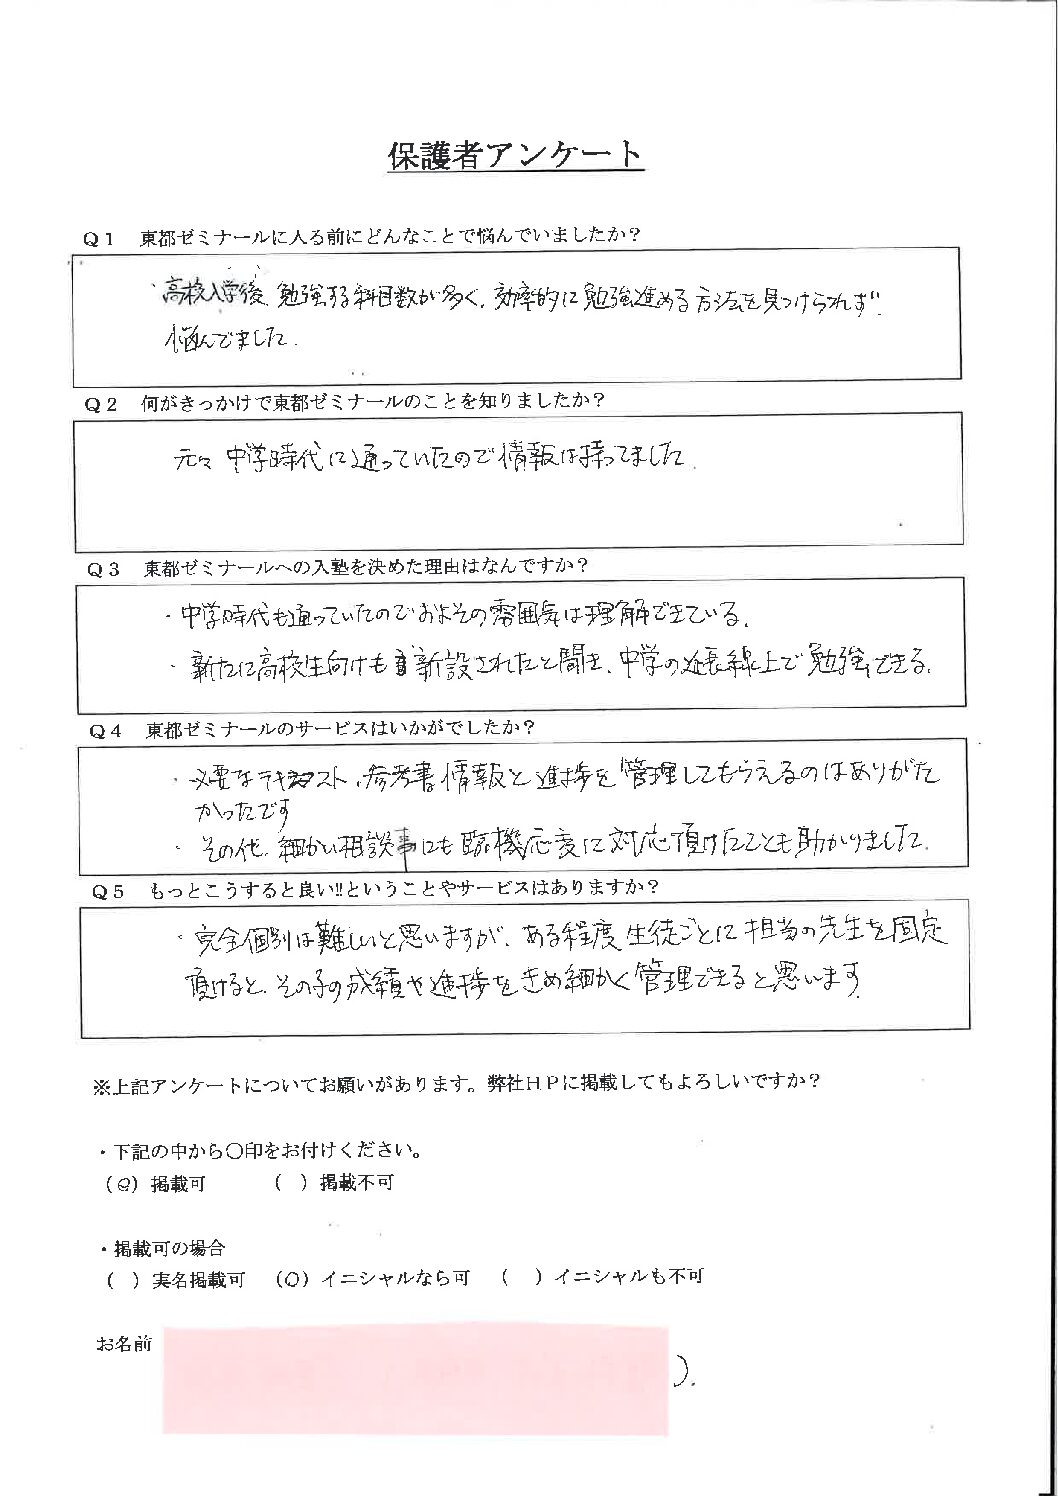 保護者アンケート
Q1 東都ゼミナールに入る前にどんなことで悩んでいましたか?
・高校入学後、勉強する科目数が多く、効率的に勉強進める方法を見つけられず
悩んでました.
Q2 何がきっかけで東都ゼミナールのことを知りましたか?
元々中学時代に通っていたので情報は持ってました.
Q3 東都ゼミナールへの入塾を決めた理由はなんですか?
・中学時代も通っていたのでおよその雰囲気は理解できている.
・新たに高校生向けも新設されたと聞き、中学の延長線上で勉強できる.
Q4 東都ゼミナールのサービスはいかがでしたか?
・必要なテキスト、参考書情報と進捗を管理してもらえるのはありがた
かったです
・その他、細かい相談事にも臨機応変に対応頂けたことも助かりました.
Q5 もっとこうすると良い!!ということやサービスはありますか?
・完全個別は難しいと思いますが、ある程度生徒ごとに担当の先生を固定
頂けると、その子の成績や進捗をきめ細かく管理できると思います.
※上記アンケートについてお願いがあります。弊社HPに掲載してもよろしいですか?
・下記の中から〇印をお付けください。
(〇)掲載可 ( )掲載不可
・掲載可の場合
( )実名掲載可 (〇)イニシャルなら可 ( )イニシャルも不可
お名前 ).